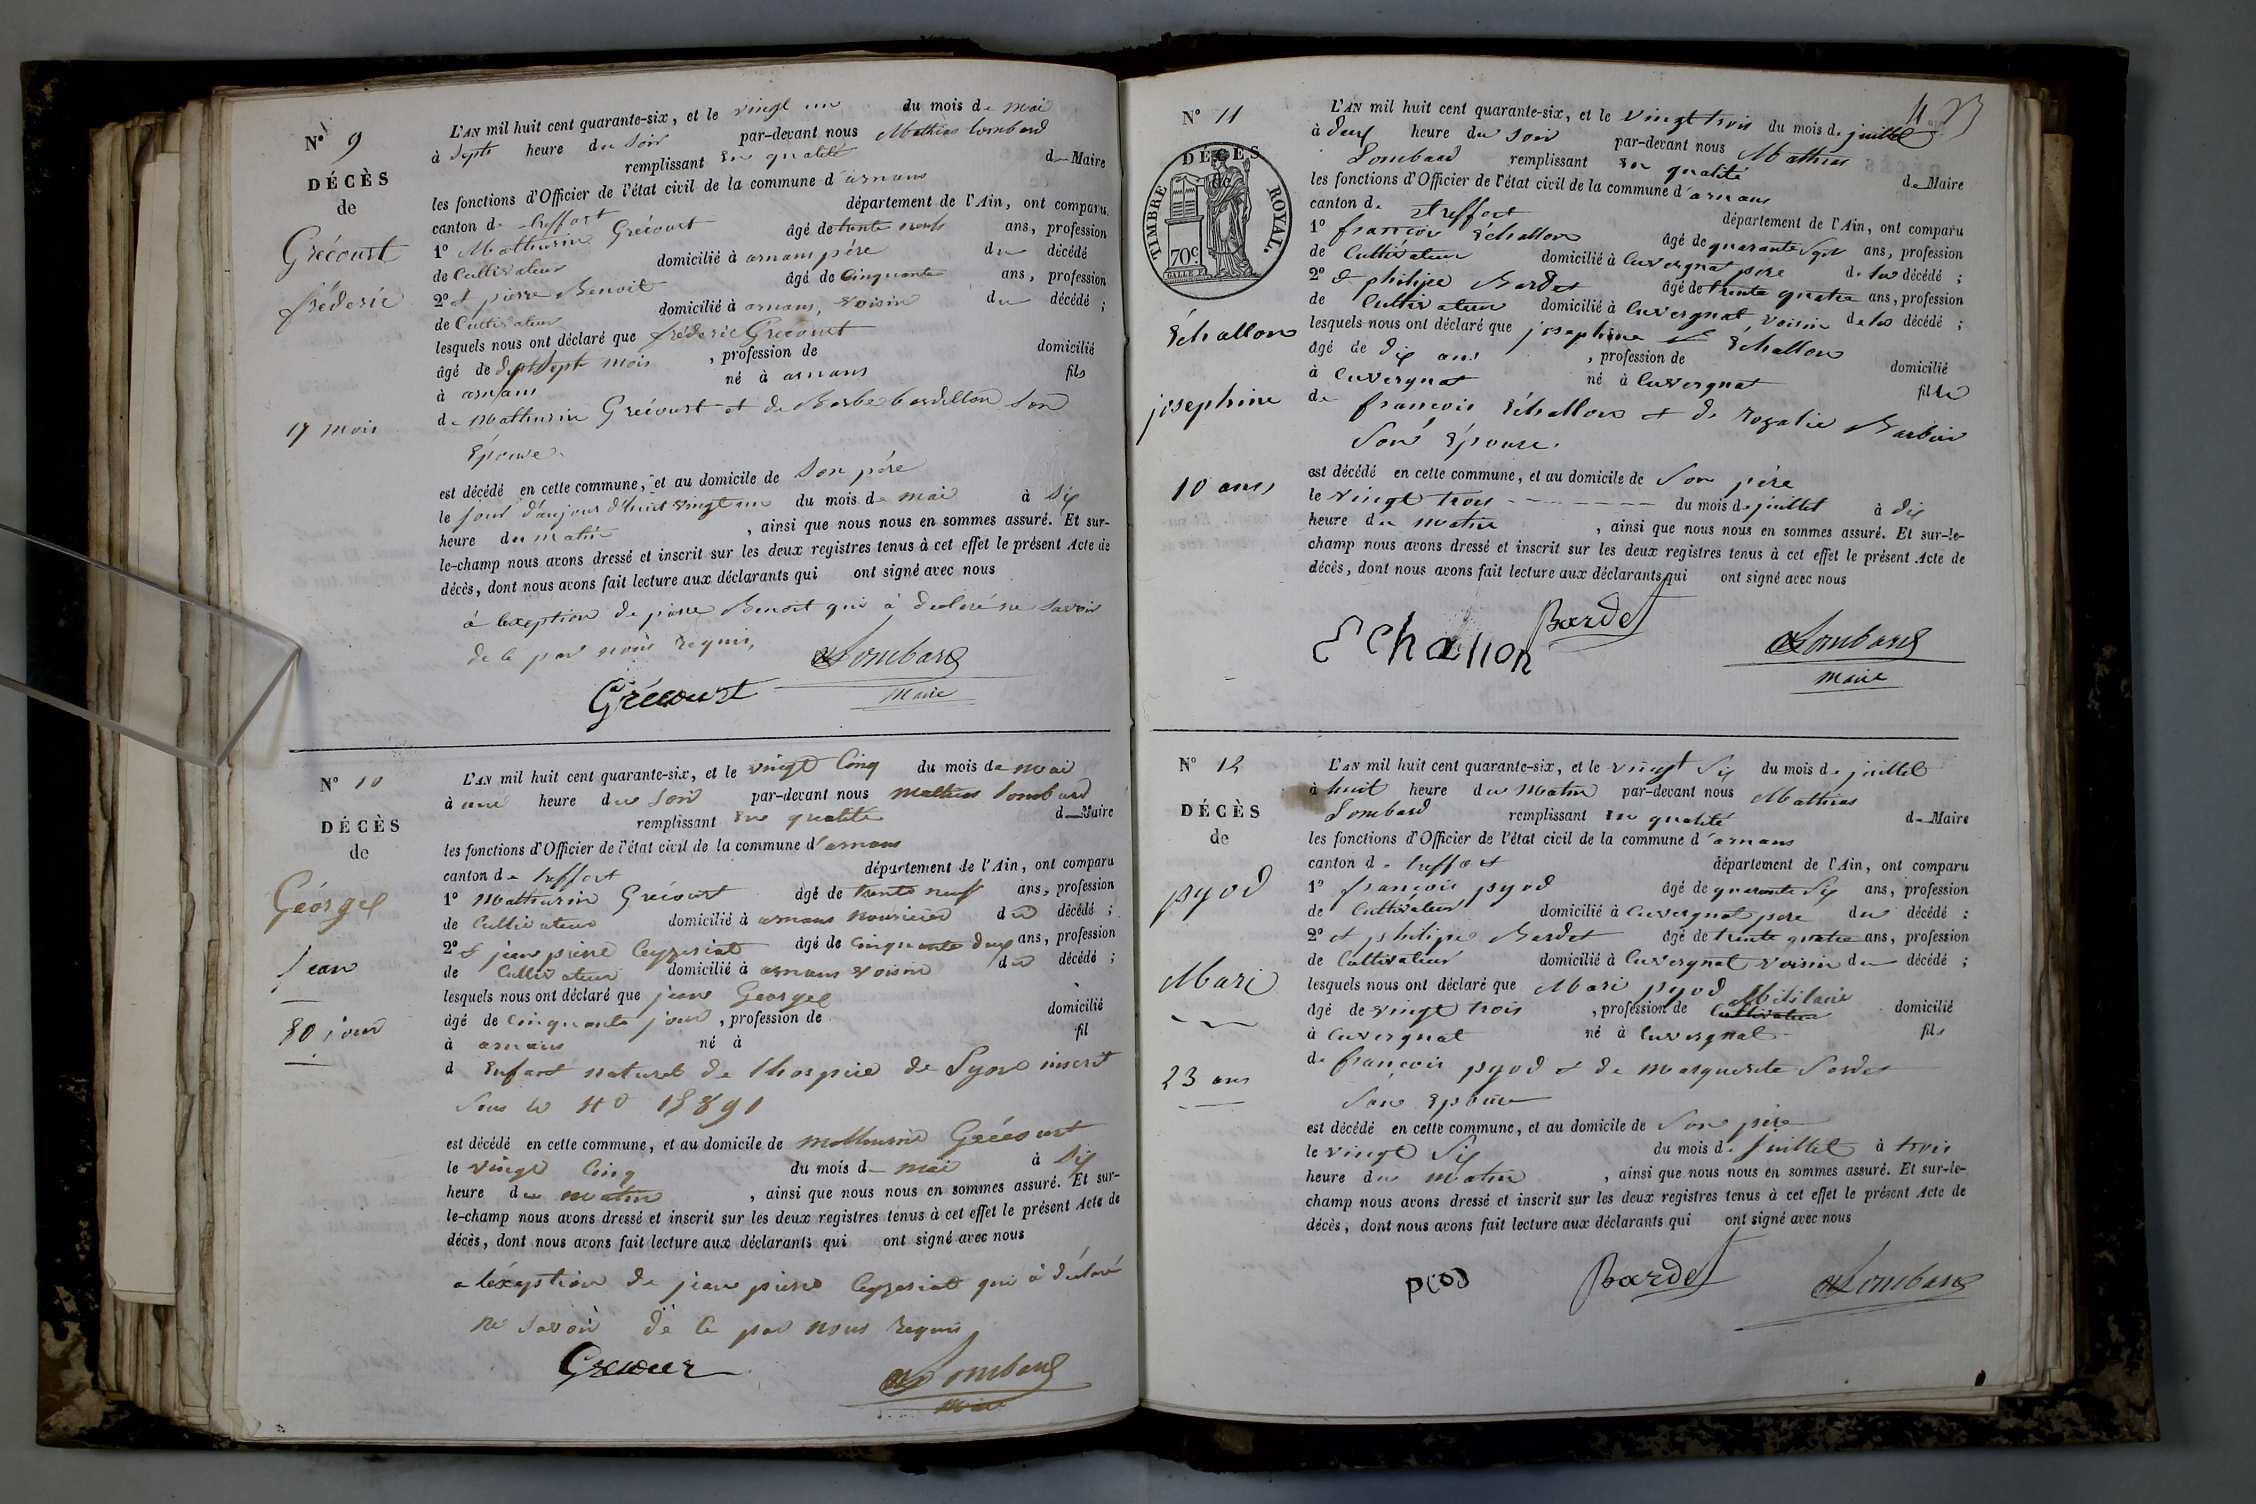 N° 9
DÉCÈS
de
Grécourt
fréderic
17 mois
L'AN mil huit cent quarante-six, et le vingt un du mois de mai
à Septs heure du Soir par-devant nous Mathias Lombard
remplissant En qualité de Maire
les fonctions d'Officier de l'état civil de la commune d'arnans
canton de treffort département de l'Ain, ont comparu
1° Mathurin Grécourt âgé de trente neufs ans, profession
de Cultivateur domicilié à arnans père du décédé
2° et pierre Benoit âgé de Cinquante ans, profession
de Cultivateur domicilié à arnans, voisin du décédé ;
lesquels nous ont déclaré que fréderic Grécourt
âgé de dix Sept mois , profession de domicilié
à arnans né à arnans fils
de Mathurin Grécourt et de Barbe bardillon Son
Épouse.
est décédé en cette commune, et au domicile de Son père
le jour d'aujourd'huit vingt un du mois de mai à dix
heure du matin , ainsi que nous nous en sommes assuré. Et sur-
le-champ nous avons dressé et inscrit sur les deux registres tenus à cet effet le présent Acte de
décès, dont nous avons fait lecture aux déclarants qui ont signé avec nous
à l'exeption de pierre Benoit qui à declaré ne Savoir
de ce par nous requis,
Lombard
Grécourt
Maire
N° 10
DÉCÈS
de
Géorgel
jean
50 jour
L'AN mil huit cent quarante-six, et le vingt Cinq du mois de mai
à une heure du Soir par-devant nous Mathias Lombard
remplissant En qualité de Maire
les fonctions d'Officier de l'état civil de la commune d'arnans
canton de treffort département de l'Ain, ont comparu
1° Mathurin Grécourt âgé de trente neufs ans, profession
de Cultivateur domicilié à arnans nouricier du décédé ;
2° et jean pierre Ceyzeriat âgé de Cinquante deux ans, profession
de Cultivateur domicilié à arnans voisin du décédé ;
lesquels nous ont déclaré que jean Georgel
âgé de cinquante jour , profession de domicilié
à arnans né à fil
d Enfant naturel de l'hospice de Lyon inscrit
Sous le N° 15891
est décédé en cette commune, et au domicile de Mathurin Grécourt
le vingt Cinq du mois de mai à dix
heure du matin , ainsi que nous nous en sommes assuré. Et sur-
le-champ nous avons dressé et inscrit sur les deux registres tenus à cet effet le présent Acte de
décès, dont nous avons fait lecture aux déclarants qui ont signé avec nous
a léxeption de jean pierre Ceyzeriat qui à déclaré
ne Savoir de ce par nous requis
Grécourt
Lombard
Maire
N° 11
DÉCÈS
de
TIMBRE ROYAL.
70c.
Échallon
josephine
10 ans
L'AN mil huit cent quarante-six, et le vingt trois du mois de juillet
à deux heure du Soir par-devant nous Mathias
Lombard remplissant En qualité de Maire
les fonctions d'Officier de l'état civil de la commune d'arnans
canton de treffort département de l'Ain, ont comparu
1° francois Échallon âgé de quarante Sept ans, profession
de Cultivateur domicilié à Cuvergnat père de la décédé ;
2° et philipe Bardet âgé de trente quatre ans, profession
de Cultivateur domicilié à Cuvergnat voisin de la décédé ;
lesquels nous ont déclaré que josephine Échallon
âgé de dix ans , profession de domicilié
à Cuvergnat né à Cuvergnat fille
de francois Échallon et de rozalie Barbier
Son Épouse.
est décédé en cette commune, et au domicile de Son père
le vingt trois du mois de juillet à dix
heure du matin , ainsi que nous nous en sommes assuré. Et sur-le-
champ nous avons dressé et inscrit sur les deux registres tenus à cet effet le présent Acte de
décès, dont nous avons fait lecture aux déclarants qui ont signé avec nous
Echallon
Bardet
Lombard
Maire
N° 12
DÉCÈS
de
pyod
Mari
23 ans
L'AN mil huit cent quarante-six, et le vingt Six du mois de juillet
à huit heure du Matin par-devant nous Mathias
Lombard remplissant En qualité de Maire
les fonctions d'Officier de l'état civil de la commune d'arnans
canton de treffort département de l'Ain, ont comparu
1° françois pyod âgé de quarante Six ans, profession
de Cultivateur domicilié à Cuvergnat père du décédé ;
2° et philipe Bardet âgé de trente quatre ans, profession
de Cultivateur domicilié à Cuvergnat voisin du décédé ;
lesquels nous ont déclaré que Mari pyod
âgé de vingt trois , profession de Cultivateur Militaire domicilié
à Cuvergnat né à Cuvergnat fils
de françois pyod et de Marguerite Sordet
Son Épouse
est décédé en cette commune, et au domicile de Son père
le vingt Six du mois de juillet à trois
heure du Matin , ainsi que nous nous en sommes assuré. Et sur-le-
champ nous avons dressé et inscrit sur les deux registres tenus à cet effet le présent Acte de
décès, dont nous avons fait lecture aux déclarants qui ont signé avec nous
piod
Bardet
Lombard